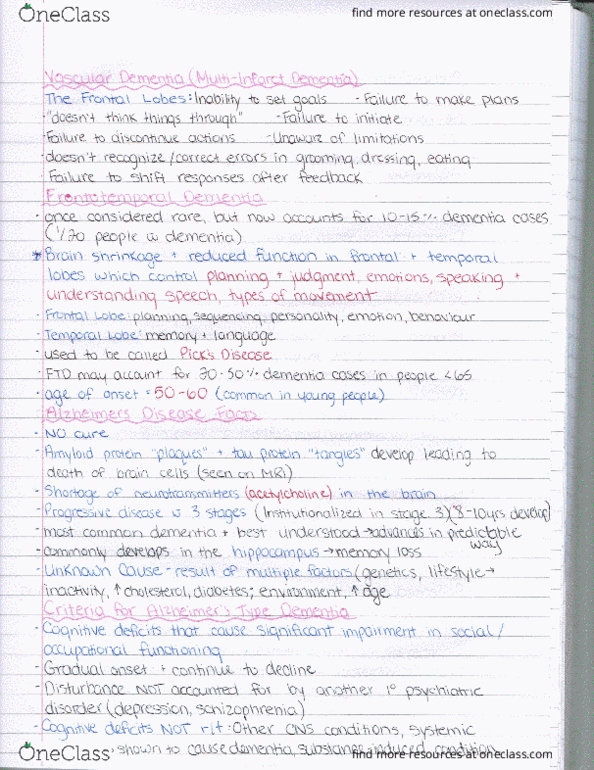 OneClass find more resources at oneclass.com
Vascular Dementia (Multi-Infarct Dementia)
The Frontal Lobes: Inability to set goals - Failure to make plans
- "doesn't think things through" - Failure to initiate
- Failure to discontinue actions - Unaware of limitations
- doesn't recognize/correct errors in grooming, dressing, eating
- Failure to shift responses after feedback
Frontotemporal Dementia
- once considered rare, but now accounts for 10-15% dementia cases
(1/20 people w dementia)
* Brain shrinkage + reduced function in frontal + temporal
lobes which control planning + judgment, emotions, speaking +
understanding speech, types of movement
- Frontal Lobe: planning, sequencing, personality, emotion, behaviour
- Temporal Lobe: memory + language
- used to be called Pick's Disease
- FTD may account for 20-50% dementia cases in people <65
- age of onset = 50-60 (common in young people)
Alzheimers Disease Facts
- No cure
- Amyloid protein "plaques" + tau protein "tangles" develop leading to
death of brain cells (seen on MRI)
- Shortage of neurotransmitters (acetylcholine) in the brain
- Progressive disease w 3 stages (Institutionalized in stage 3) (8-10yrs develop)
- most common dementia + best understood → advances in predictable
way
- commonly develops in the hippocampus → memory loss
- Unknown Cause - result of multiple factors (genetics, lifestyle →
inactivity, ↑ cholesterol, diabetes; environment, ↑ age
Criteria for Alzheimer's Type Dementia
- Cognitive deficits that cause significant impairment in social/
occupational functioning
- Gradual onset + continue to decline
- Disturbance NOT accounted for by another 1° psychiatric
disorder (depression, schizophrenia)
- Cognitive deficits NOT r/t: Other CNS conditions, systemic
shown to cause dementia, substance-induced condition
OneClass find more resources at oneclass.com